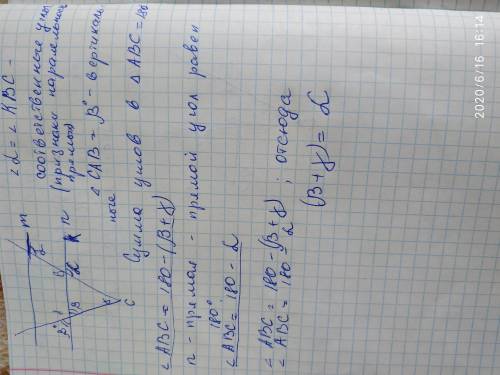 ∠α = ∠KBC -
соответственные углы
(признаки паралельности
прямых)
∠CAB = β° - вертикаль
ные
Сумма углов в △ABC = 180
∠ABC = 180 - (β + γ)
n - прямая - прямой угол равен
180°
∠ABC = 180 - α
∠ABC = 180 - (β + γ) ; отсюда
∠ABC = 180 - α
(β + γ) = α
m
n
K
C
2020/6/16 16:14